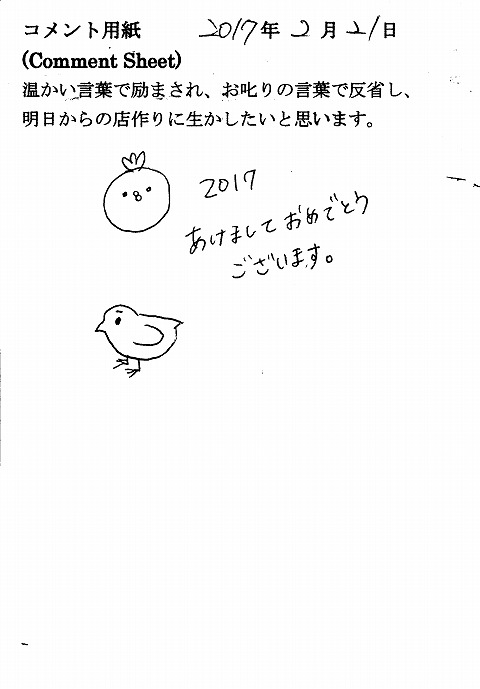 コメント用紙 2017年2月21日
(Comment Sheet)
温かい言葉で励まされ、お叱りの言葉で反省し、
明日からの店作りに生かしたいと思います。
2017
あけまして おめでとう
ございます。